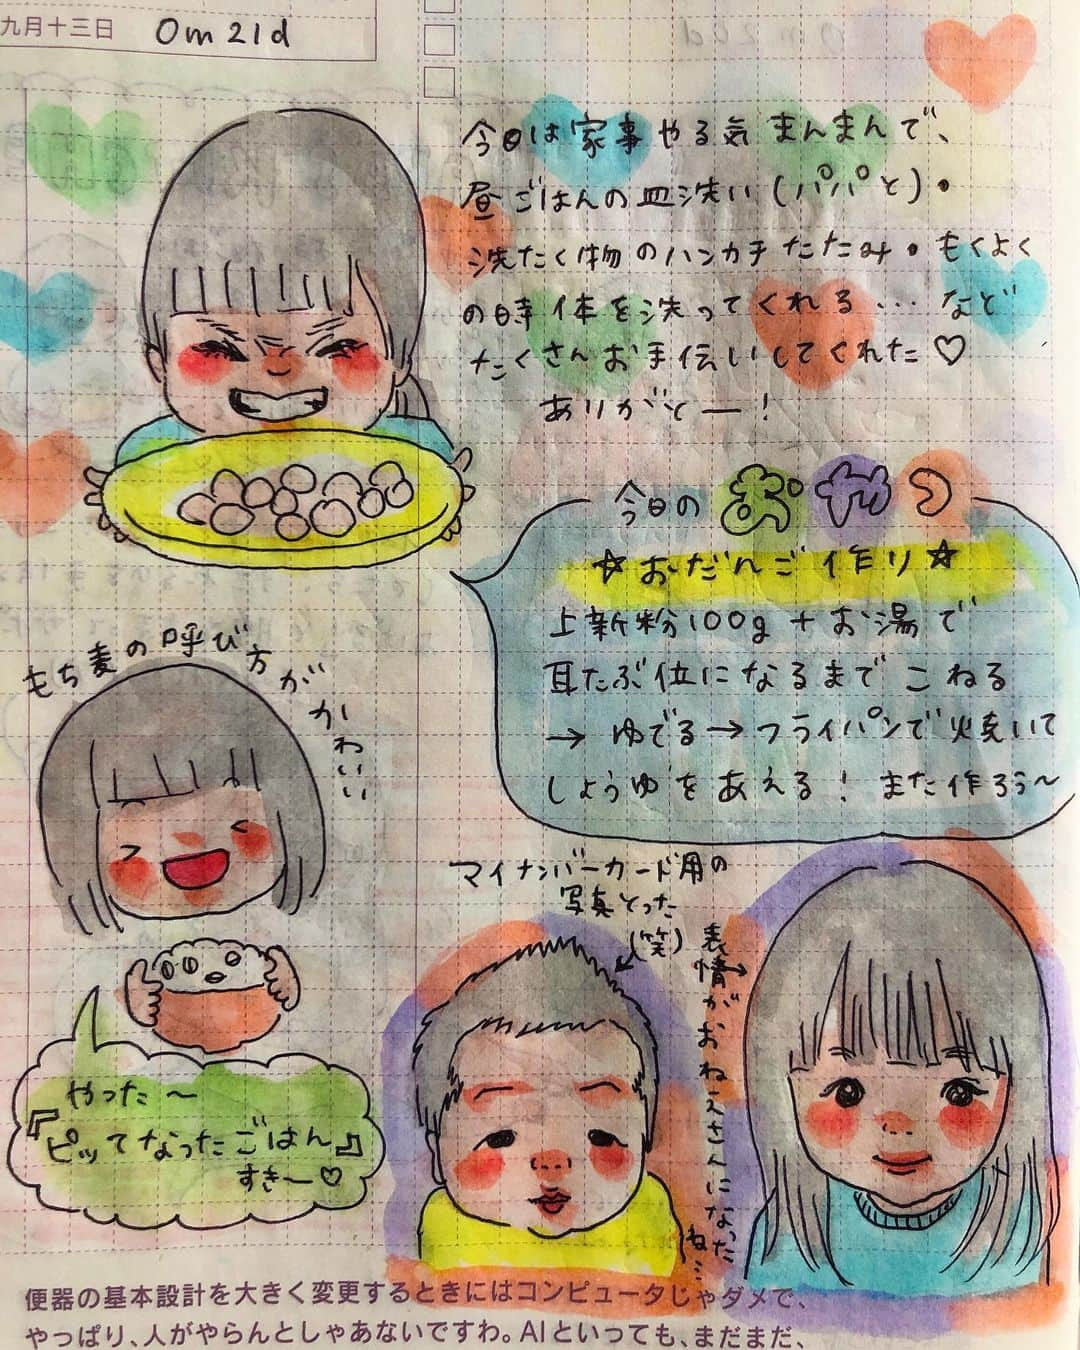 九月十三日 0m21d
今日は家事やる気まんまんで、
昼ごはんの皿洗い(パパと)・
洗たく物のハンカチたたみ・もくよく
の時体を洗ってくれる...など
たくさんお手伝いしてくれた♡
ありがとー!
今日のおやつ
☆おだんご作り☆
上新粉100g+お湯で
耳たぶ位になるまでこねる
→ゆでる→フライパンで焼いて
しょうゆをあえる!また作ろう〜
もち麦の呼び方がかわいい
やった〜
『ピッてなったごはん』
すき〜♡
マイナンバーカード用の
写真とった
(笑)
表情がおねえさんになったね...
便器の基本設計を大きく変更するときにはコンピュータじゃダメで、
やっぱり、人がやらんとしゃあないですわ。AIといっても、まだまだ、